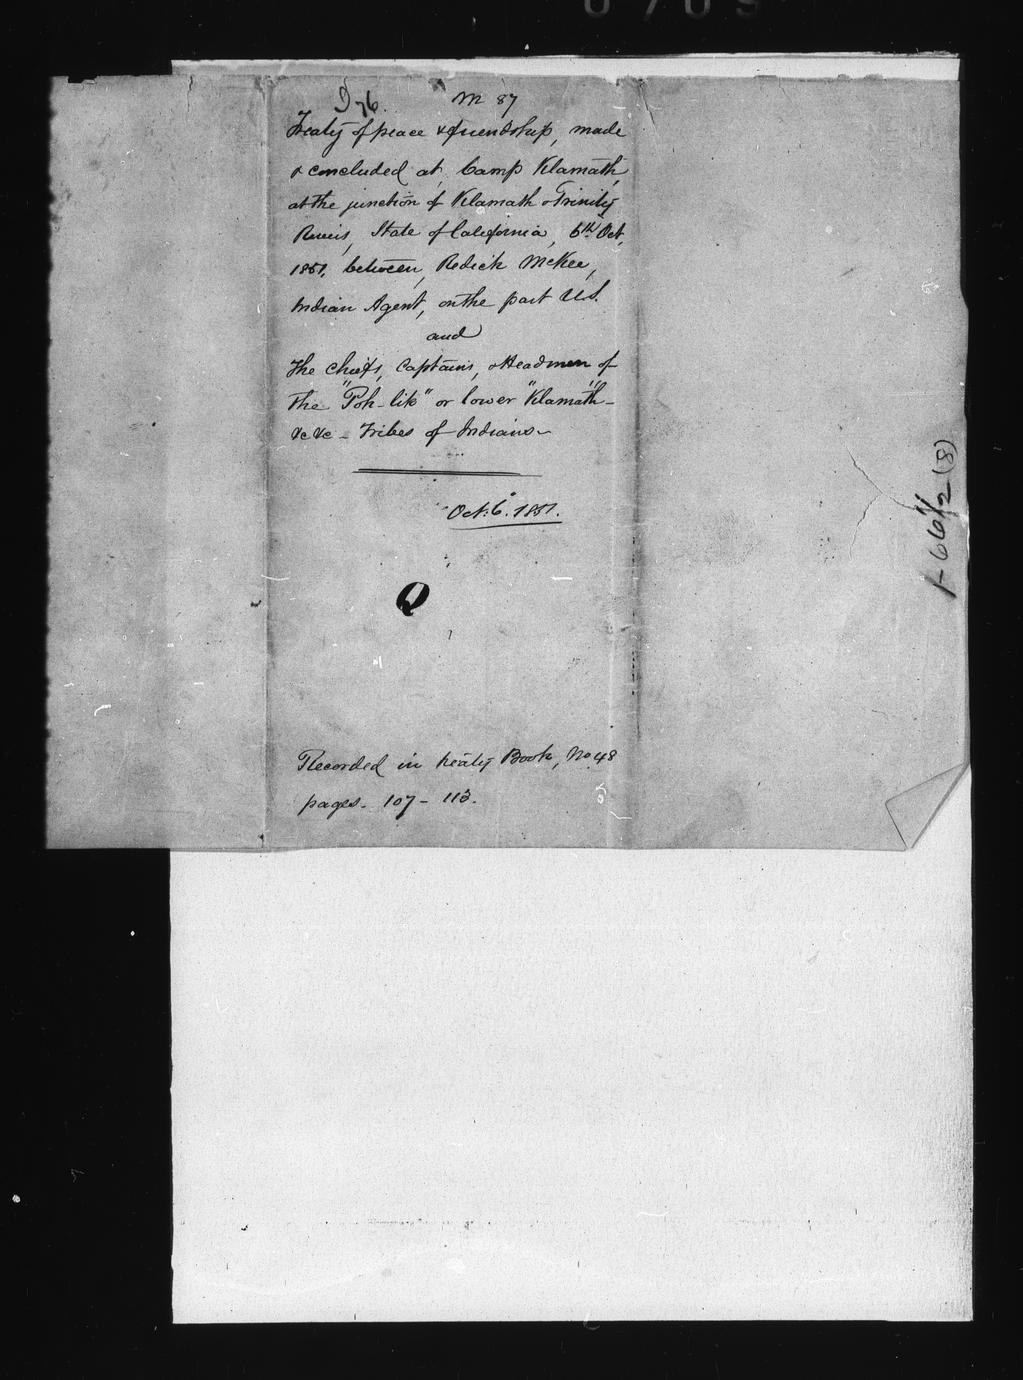 M 87
Treaty of peace & friendship, made
& concluded at, Camp Klamath,
at the junction of Klamath & Trinity
Rivers, State of California, 6th Oct,
1851, between, Redick McKee,
Indian Agent, on the part U.S.
and
The chiefs, Captains, & Headmen of
the "Poh-lik" or lower "Klamath" -
&c &c - Tribes of Indians -
Oct. 6. 1851.
Q
Recorded in treaty Book, No. 48
pages - 107 - 113.
1-66 1/2 (8)